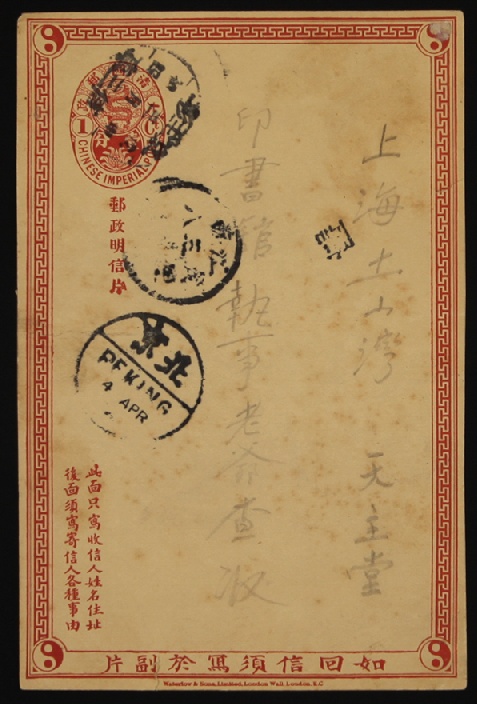 上海土山灣 天主堂
印書館執事老爺查收
1
CHINESE IMPERIAL
郵政明信片
北京
PEKING
4 APR
此面只寫收信人姓名住址
後面須寫寄信人各種事由
如回信須寫於副片
Waterlow & Sons, Limited, London Wall, London, E.C